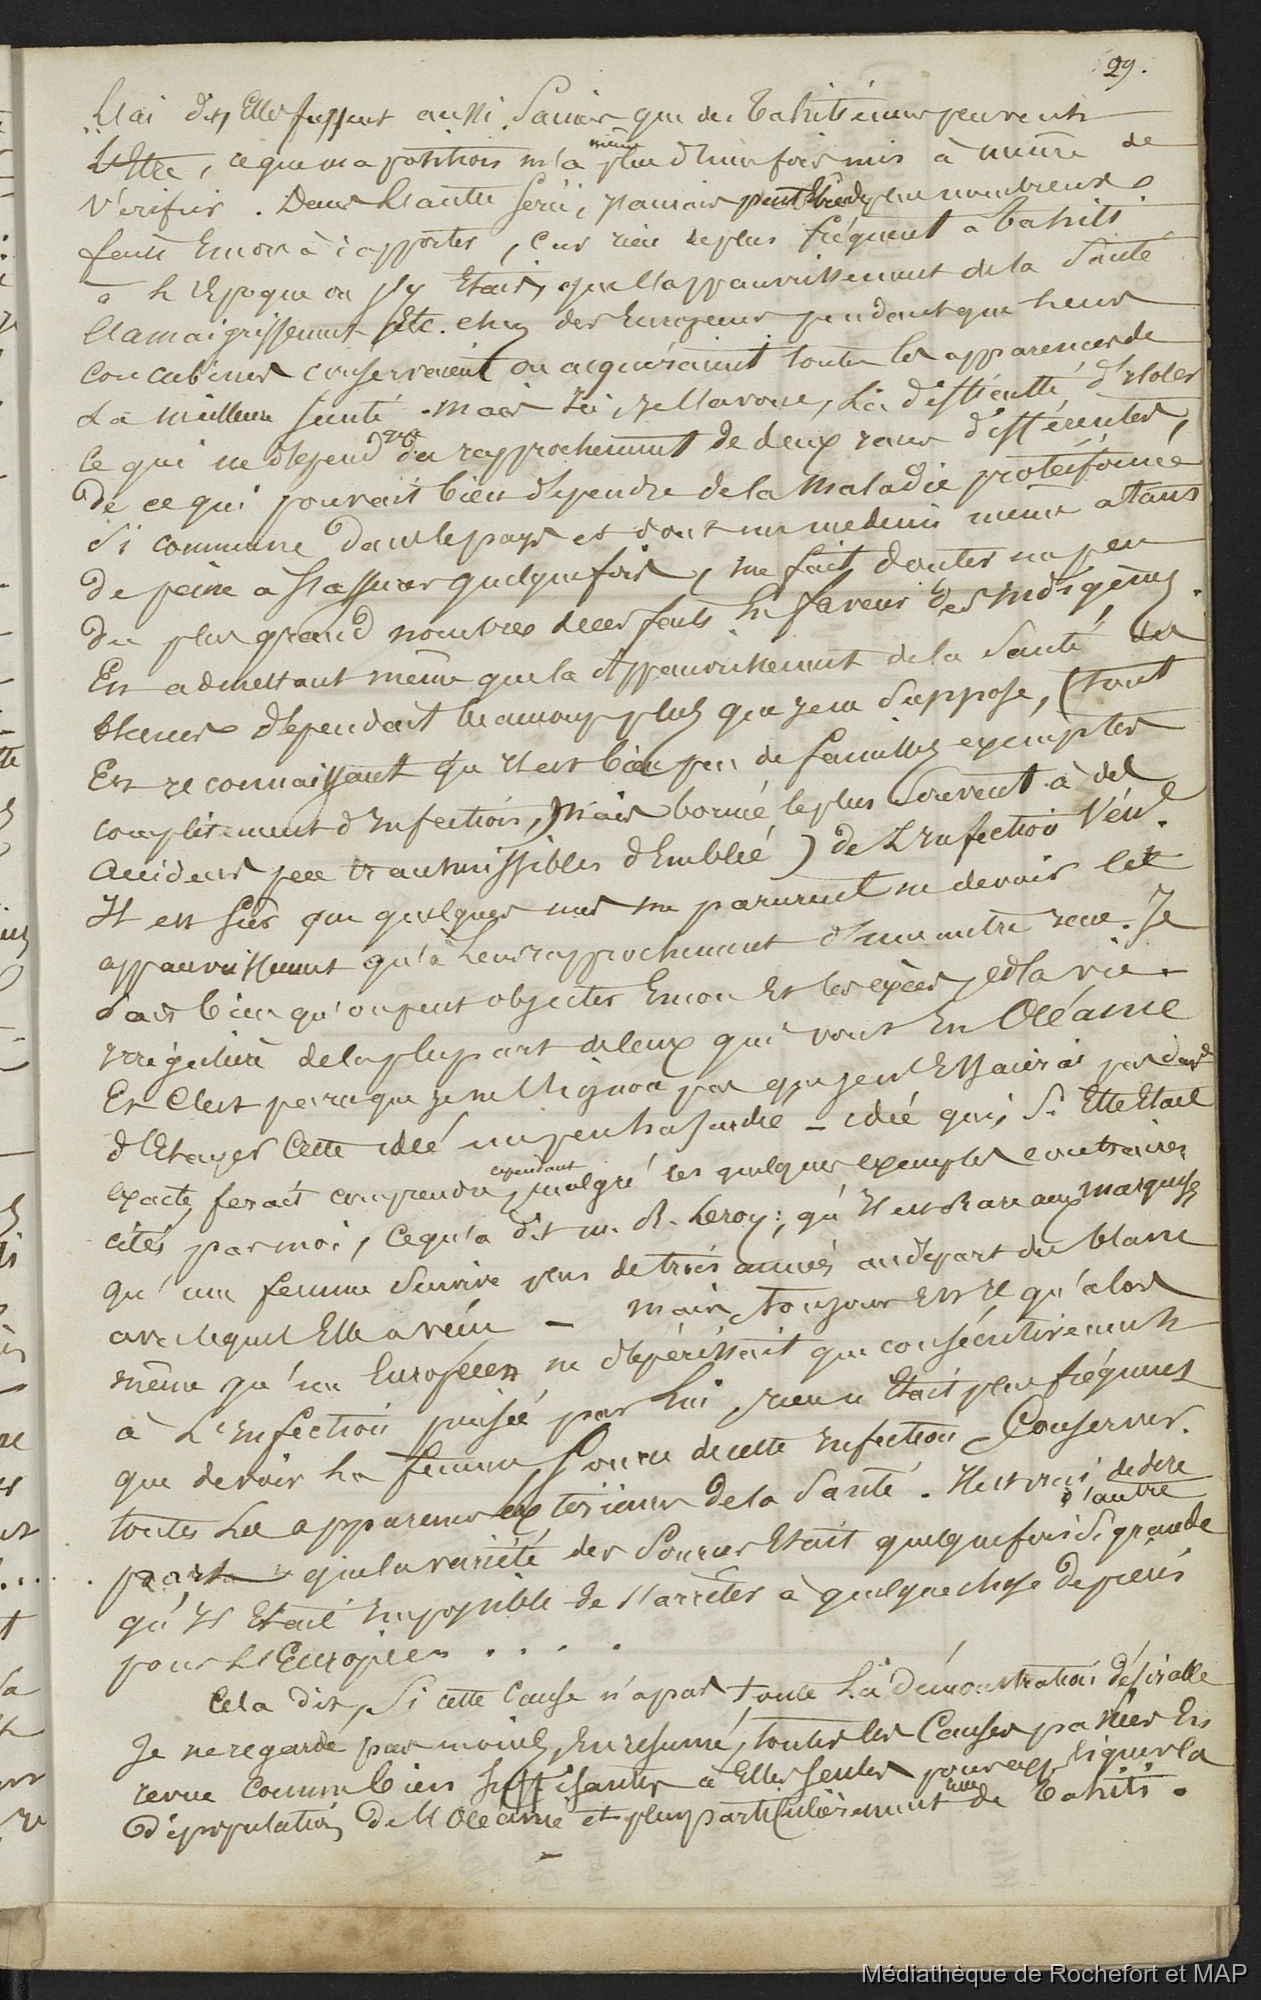 29.
l'ai dit, Elles fussent aussi saines que des tahitiennes peuvent
L'Etre, ce que ma position m'a même plus d'une fois mis à même de
vérifier. Dans L'autre série, j'aurais peut être de plus nombreux
faits Encore à rapporter, car rien de plus fréquent à tahiti
à L'Epoque où j'y Etais, que l'appauvrissement de la Santé
L'amaigrissement Etc. chez des Européens pendant que Leurs
concubines conservaient ou acquéraient toutes les apparences de
La meilleure santé. Mais ici, je l'avoue, La difficulté d'isoler
ce qui ne dépend que du rapprochement de deux races différentes,
de ce qui pouvait bien dépendre de la Maladie protéiforme
si commune dans le pays et dont un médecin même a tant
de peine à s'assurer quelquefois, me fait douter un peu
du plus grand nombre de ces faits En faveur des indigènes.
En admettant même que l'appauvrissement de la Santé des
blancs dépendait beaucoup plus que je ne suppose, (tout
En reconnaissant qu'il est bien peu de familles exemptes
complètement d'infection, mais borné le plus souvent à des
accidens peu transmissibles d'Emblée) de L'infection Vén.le
Il est sûr que quelques uns me parurent ne devoir cet
appauvrissement qu'à Leur rapprochement d'une autre race. Je
sais bien qu'on peut objecter Encore Et les excès, et la vie
irrégulière de la plupart de ceux qui vont En Océanie
Et C'est parce que je ne L'ignore pas que je n'Essaierai pas
d'Etayer Cette idée un peu hasardée - idée qui, si Elle Etait
exacte, ferait comprendre cependant, malgré les quelques exemples contraires
cités par moi, ce qu'a dit M. R. Leroy: qu'il est Rare aux Marquises
qu'une femme survive plus de trois années au départ du blanc
avec lequel Elle a vécu - Mais, toujours Est il qu'alors
même qu'un Européen ne dépérissait que consécutivement
à L'infection puisée par Lui, rien n'Etait plus fréquent
que de voir La femme, Source de cette infection Conserver
toutes Les apparences extérieures de la Santé. Il est vrai de dire d'autre
part que la variété des Sources Etait quelquefois si grande
qu'il Etait impossible de s'arrêter à quelque chose de précis
pour L'Européen . . . .
Cela dit, Si cette Cause n'a pas toute La démonstration désirable
Je ne regarde pas moins, En résumé, toutes les Causes passées En
revue comme bien suffisantes à Elles seules pour expliquer la
dépopulation de L'Océanie et plus particulièrement de tahiti.
Médiathèque de Rochefort et MAP